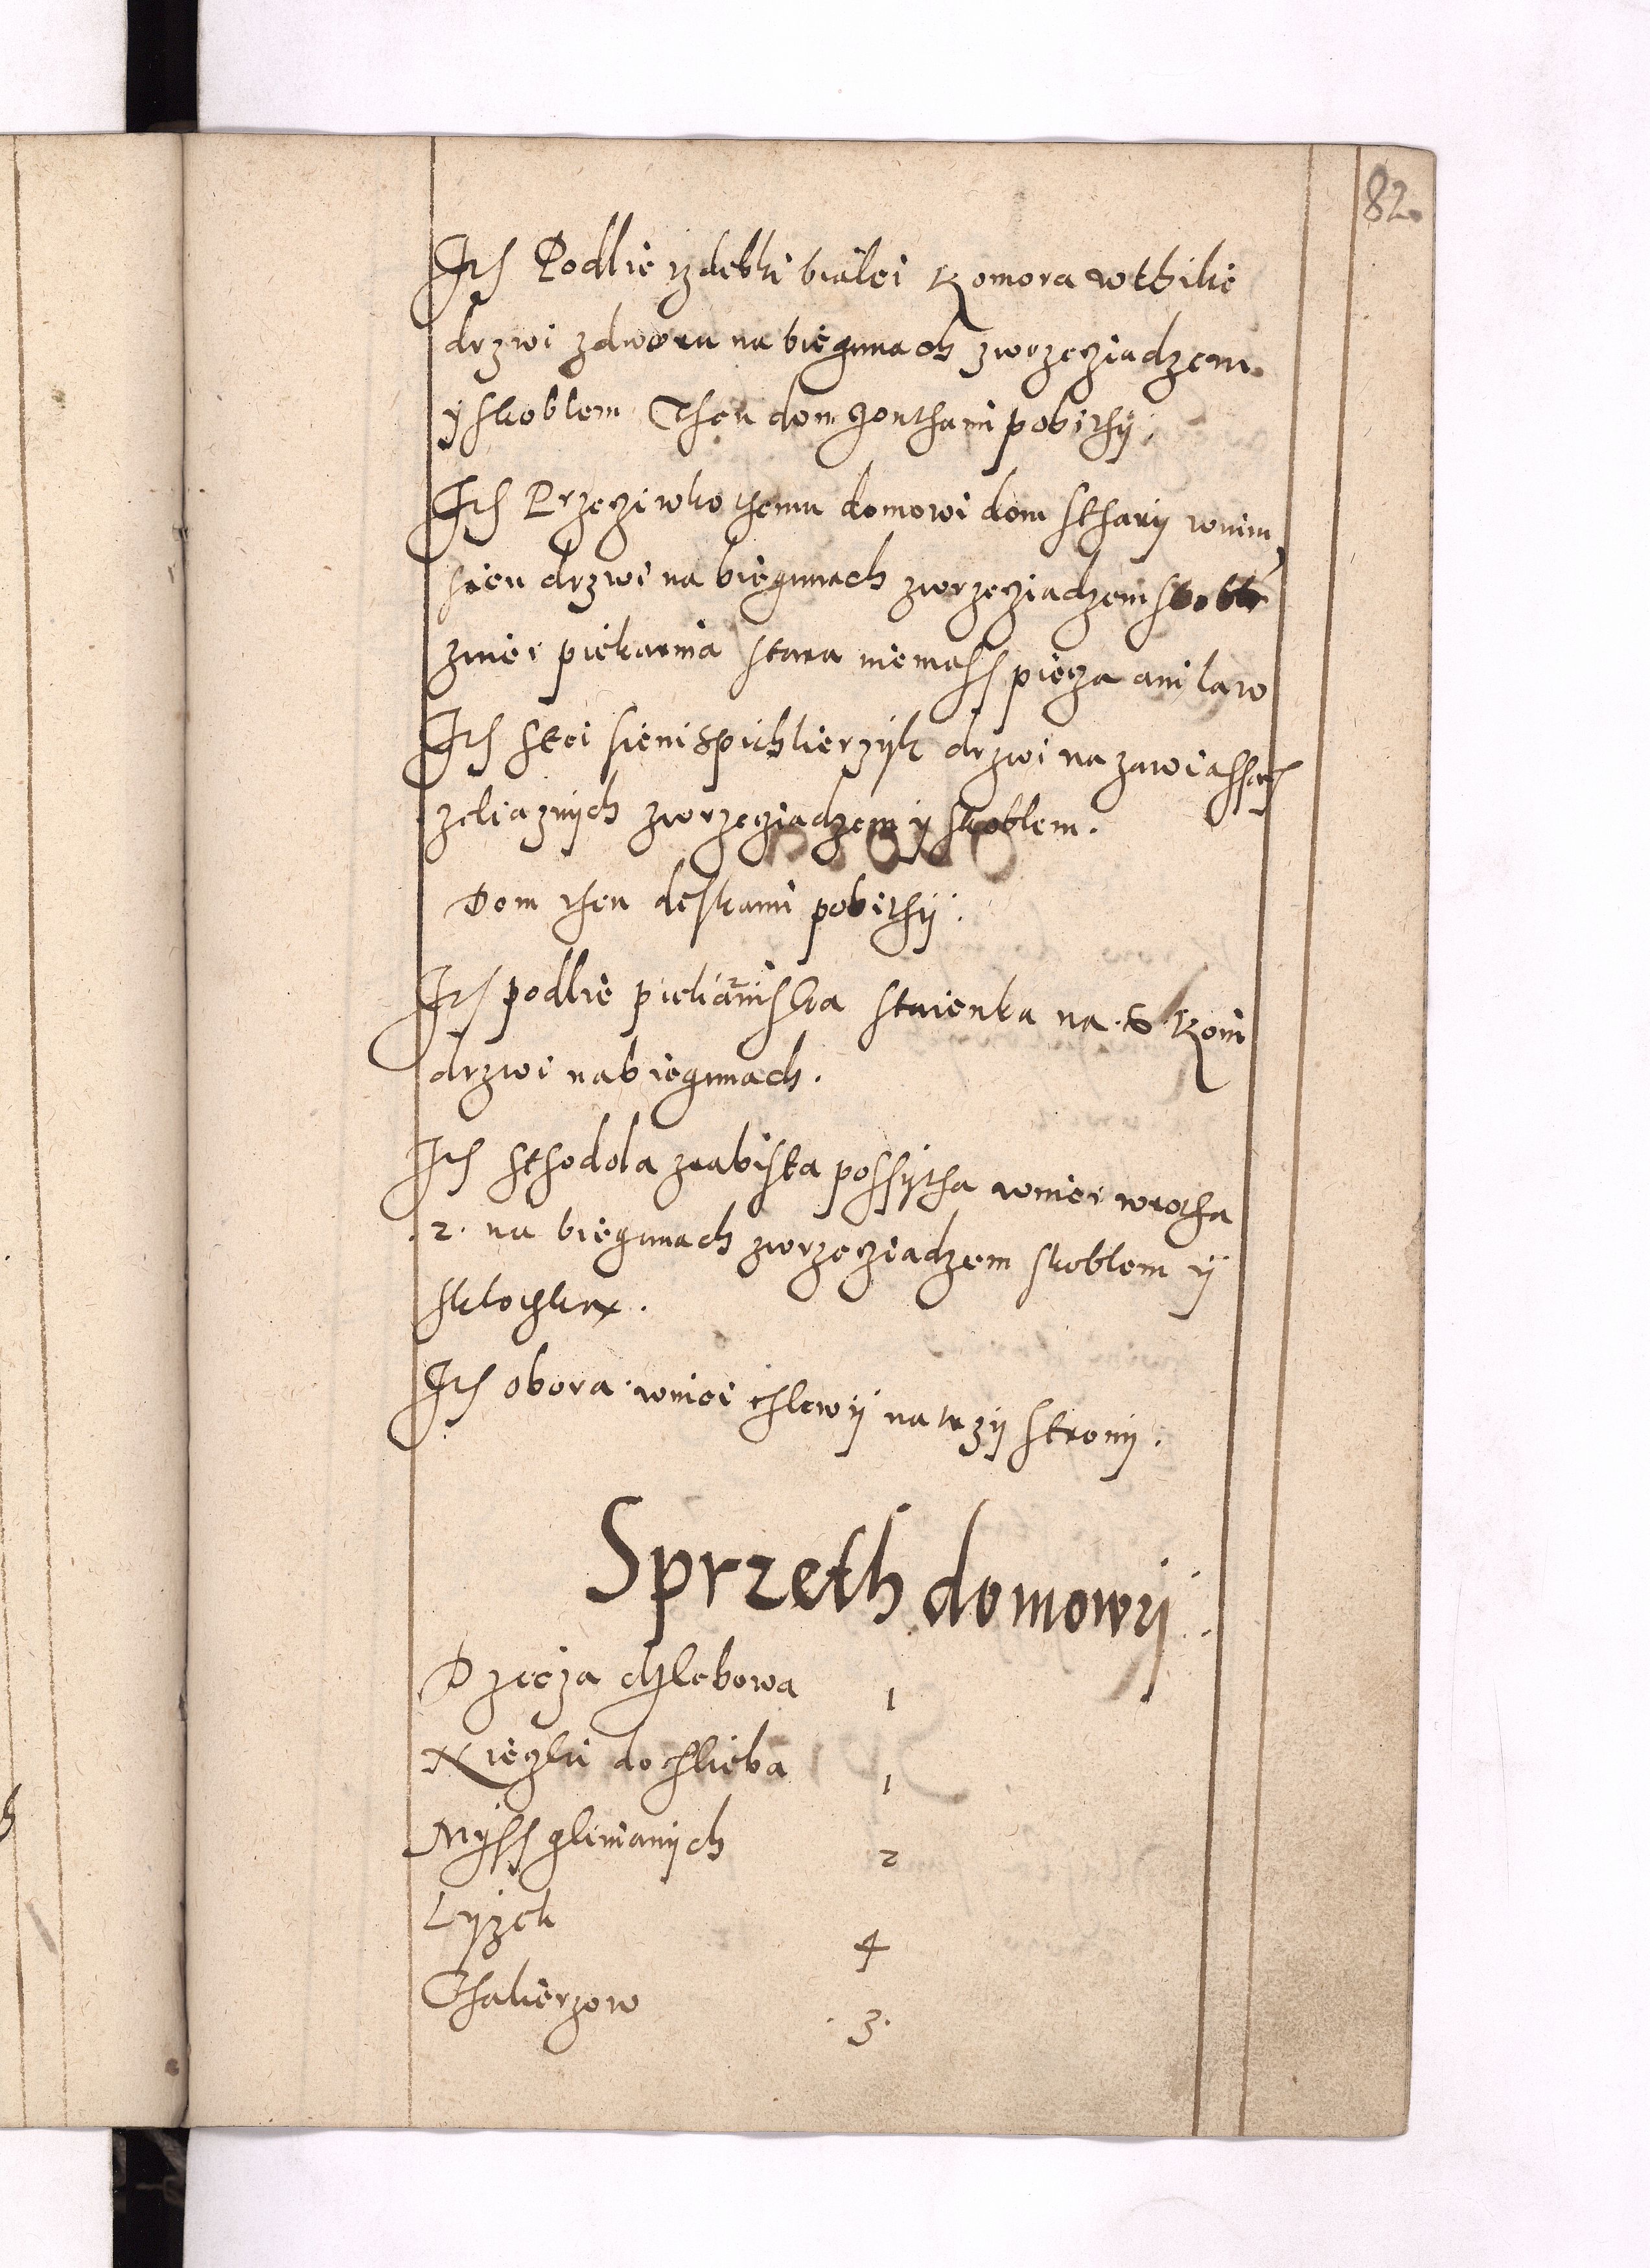 82.
Ith Podlie yzdebki bialei Komora wthilie
drzwi zdworu na biegunach zwrzecziadzem
y skoblem Then dom gonthami pobithÿ.
Ith Przecziwko themu domowi dom stharÿ wnim
sien drzwi na biegunach zwrzecziadzem skoble
zniei piekarnia stara niemass piecza ani law
Ith stei sieni spichlierzÿk drzwi na zawiassach
zeliaznÿch zwrzecziadzem y skoblem.
Dom then deskami pobithÿ.
Ith podlie piekarniska staienka na .6. Koni
drzwi na biegunach.
Ith sthodola zrabista possÿtha wniei wrotha
.2. na biegunach zwrzecziadzem skoblem ÿ
Ith obora wniei chlewÿ na trzÿ stronÿ.
Sprzeth domowÿ
Dzecza chlebowa 1
Nieczki do chlieba 1
Myss glinianÿch 2
Lÿzek 4
Thalierzow .3.